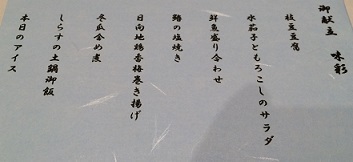 御献立 味彩
枝豆豆腐
水茄子ともろこしのサラダ
鮮魚盛り合わせ
鰆の塩焼き
日向地鶏香梅巻き揚げ
冬瓜含め煮
しらすの土鍋御飯
本日のアイス